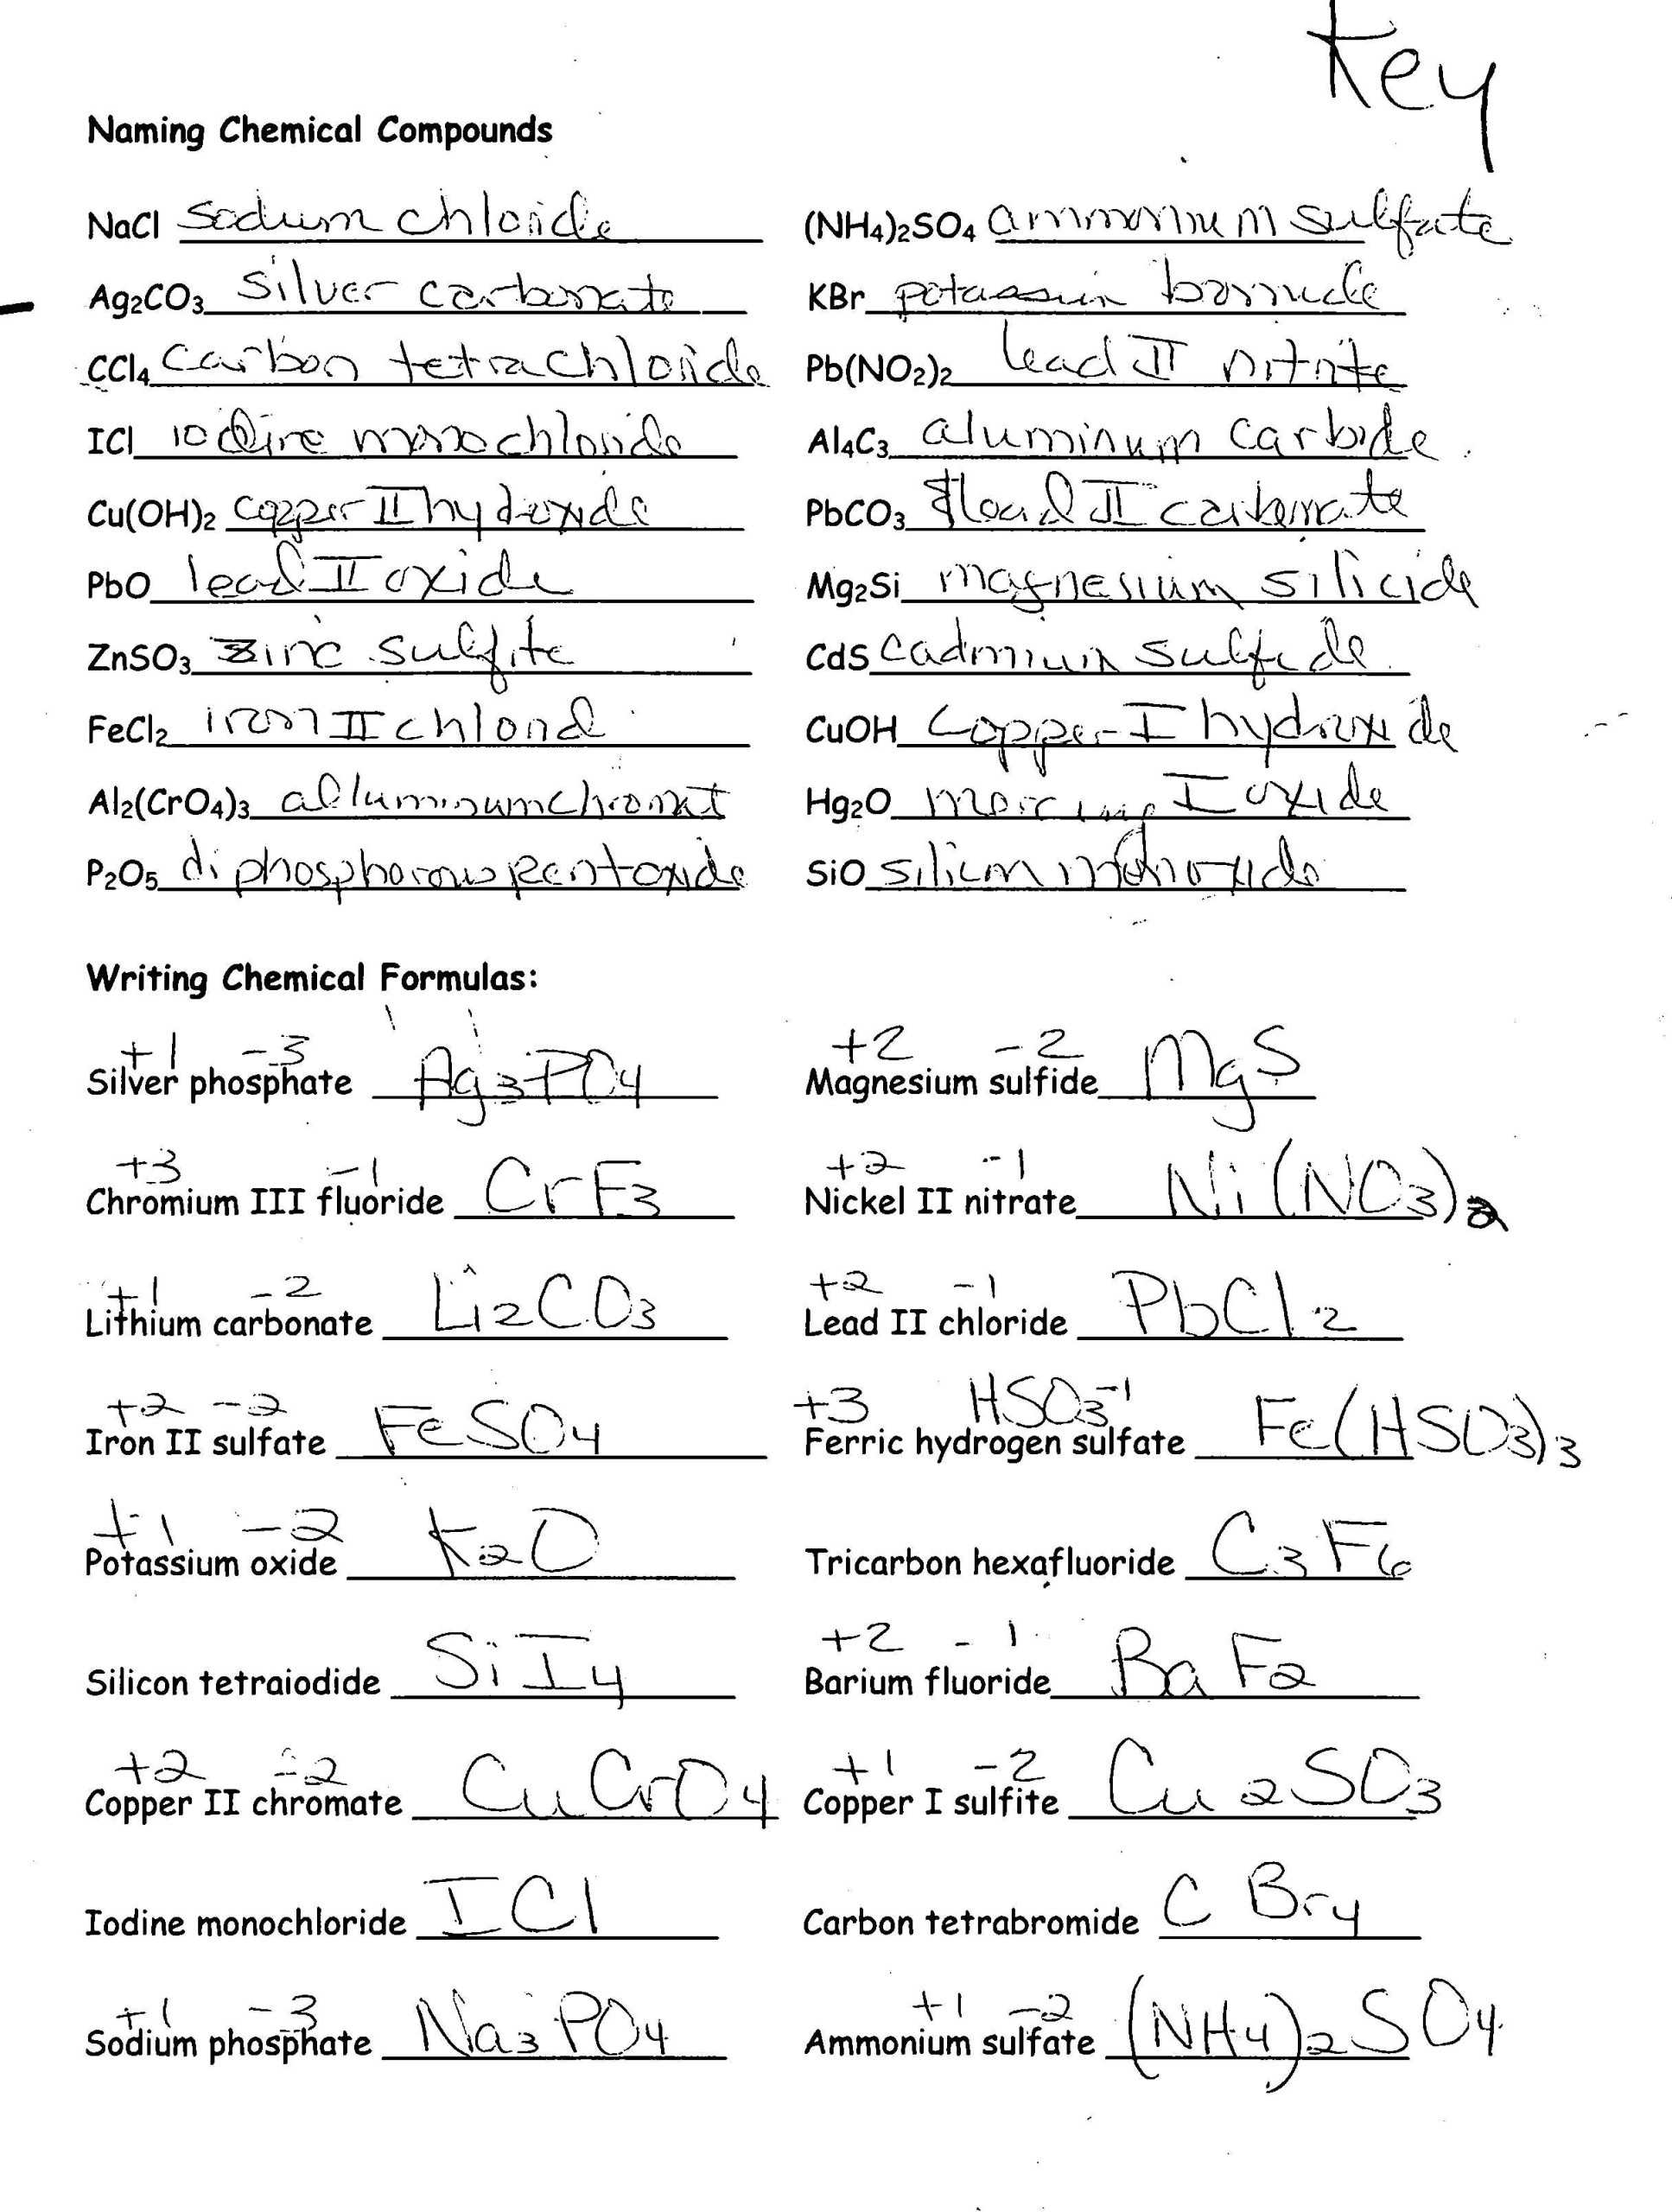 Key
Naming Chemical Compounds
NaCl sodium chloride (NH4)2SO4 ammonium sulfate
Ag2CO3 silver carbonate KBr potassium bromide
CCl4 carbon tetrachloride Pb(NO2)2 lead II nitrite
ICl iodine monochloride Al4C3 aluminum carbide
Cu(OH)2 copper II hydroxide PbCO3 lead II carbonate
PbO lead II oxide Mg2Si magnesium silicide
ZnSO3 zinc sulfite CdS cadmium sulfide
FeCl2 iron II chlorid CuOH copper I hydroxide
Al2(CrO4)3 alluminum chromat Hg2O mercury I oxide
P2O5 diphosphorous pentoxide SiO silicon monoxide
Writing Chemical Formulas:
+1 -3 +2 -2
Silver phosphate Ag3PO4 Magnesium sulfide MgS
+3 -1 +2 -1
Chromium III fluoride CrF3 Nickel II nitrate Ni(NO3)2
+1 -2 +2 -1
Lithium carbonate Li2CO3 Lead II chloride PbCl2
+2 -2 +3 HSO3-1
Iron II sulfate FeSO4 Ferric hydrogen sulfate Fe(HSO3)3
+1 -2
Potassium oxide K2O Tricarbon hexafluoride C3F6
+2 -1
Silicon tetraiodide SiI4 Barium fluoride BaF2
+2 -2 +1 -2
Copper II chromate CuCrO4 Copper I sulfite Cu2SO3
Iodine monochloride ICl Carbon tetrabromide CBr4
+1 -3 +1 -2
Sodium phosphate Na3PO4 Ammonium sulfate (NH4)2SO4